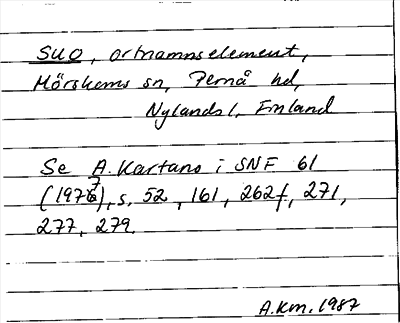 suo, ortnamnselement,
Mörskoms sn, Pernå hd,
Nylands l, Finland
Se A. Kartano i SNF 61
(1977), s. 52, 161, 262f, 271,
277, 279.
A.Km. 1987